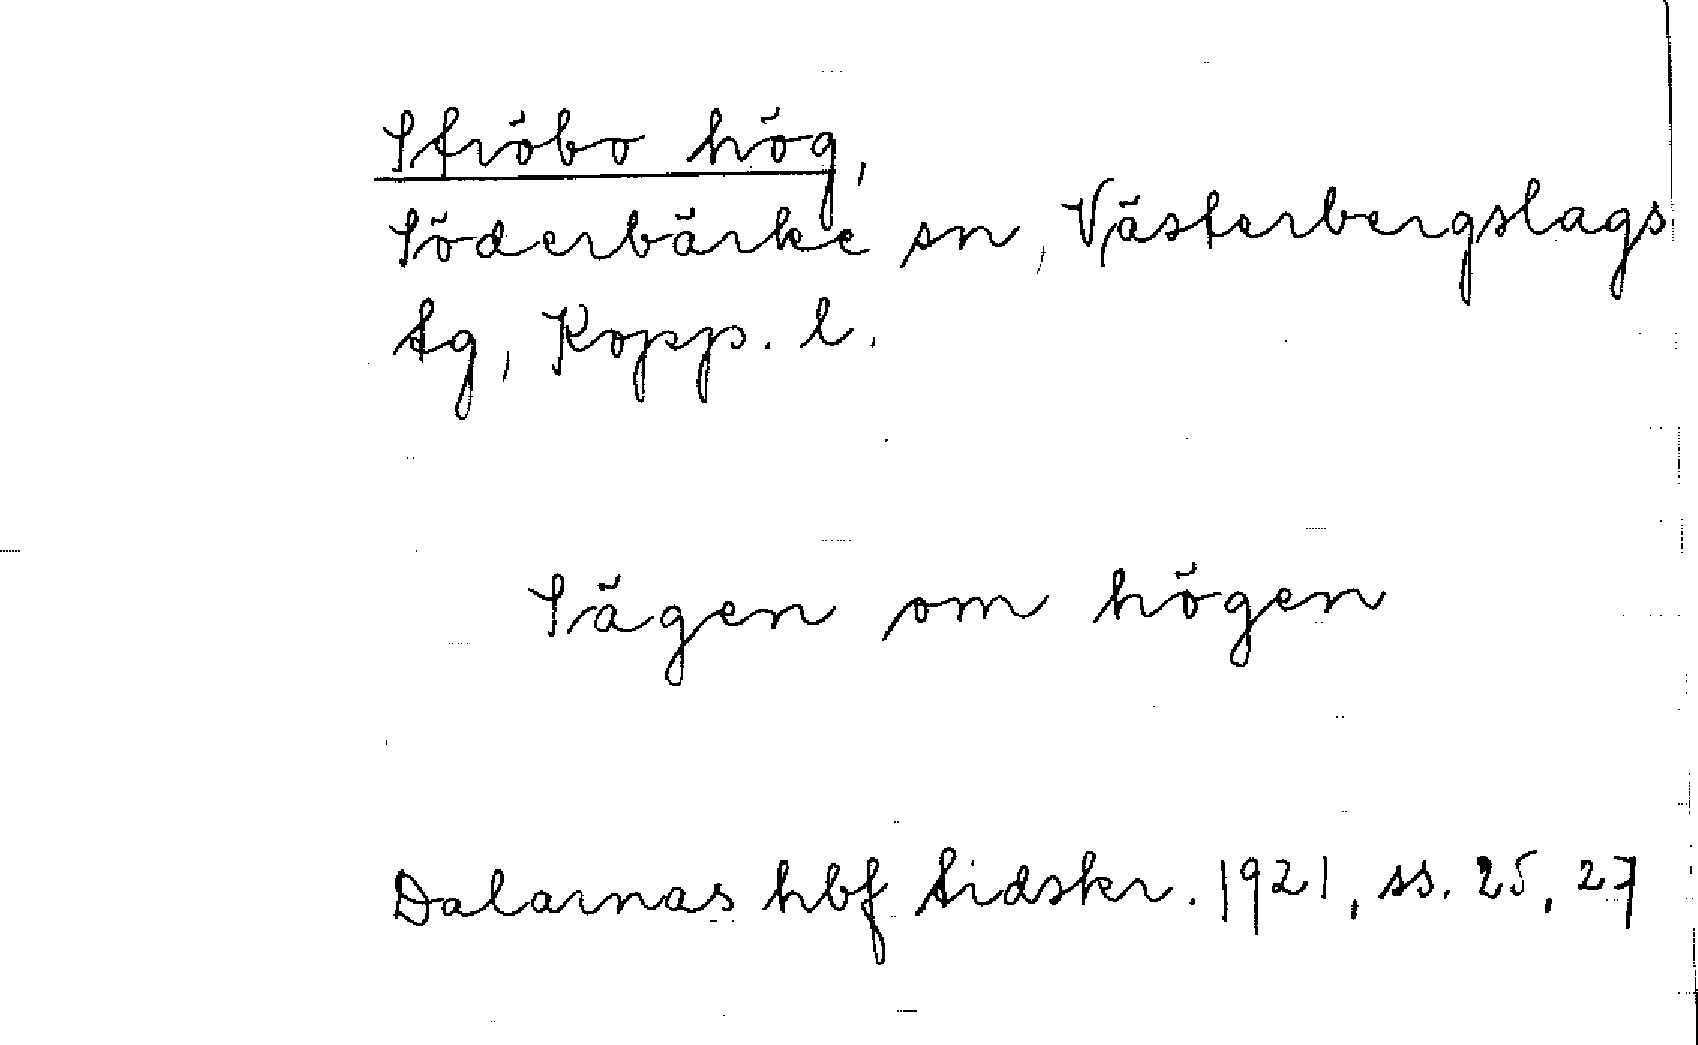 Ströbo hög,
Söderbärke sn, Västerbergslags
tg, Kopp. l.
Sägen om högen
Dalarnas hbf tidskr. 1921, ss. 25, 27